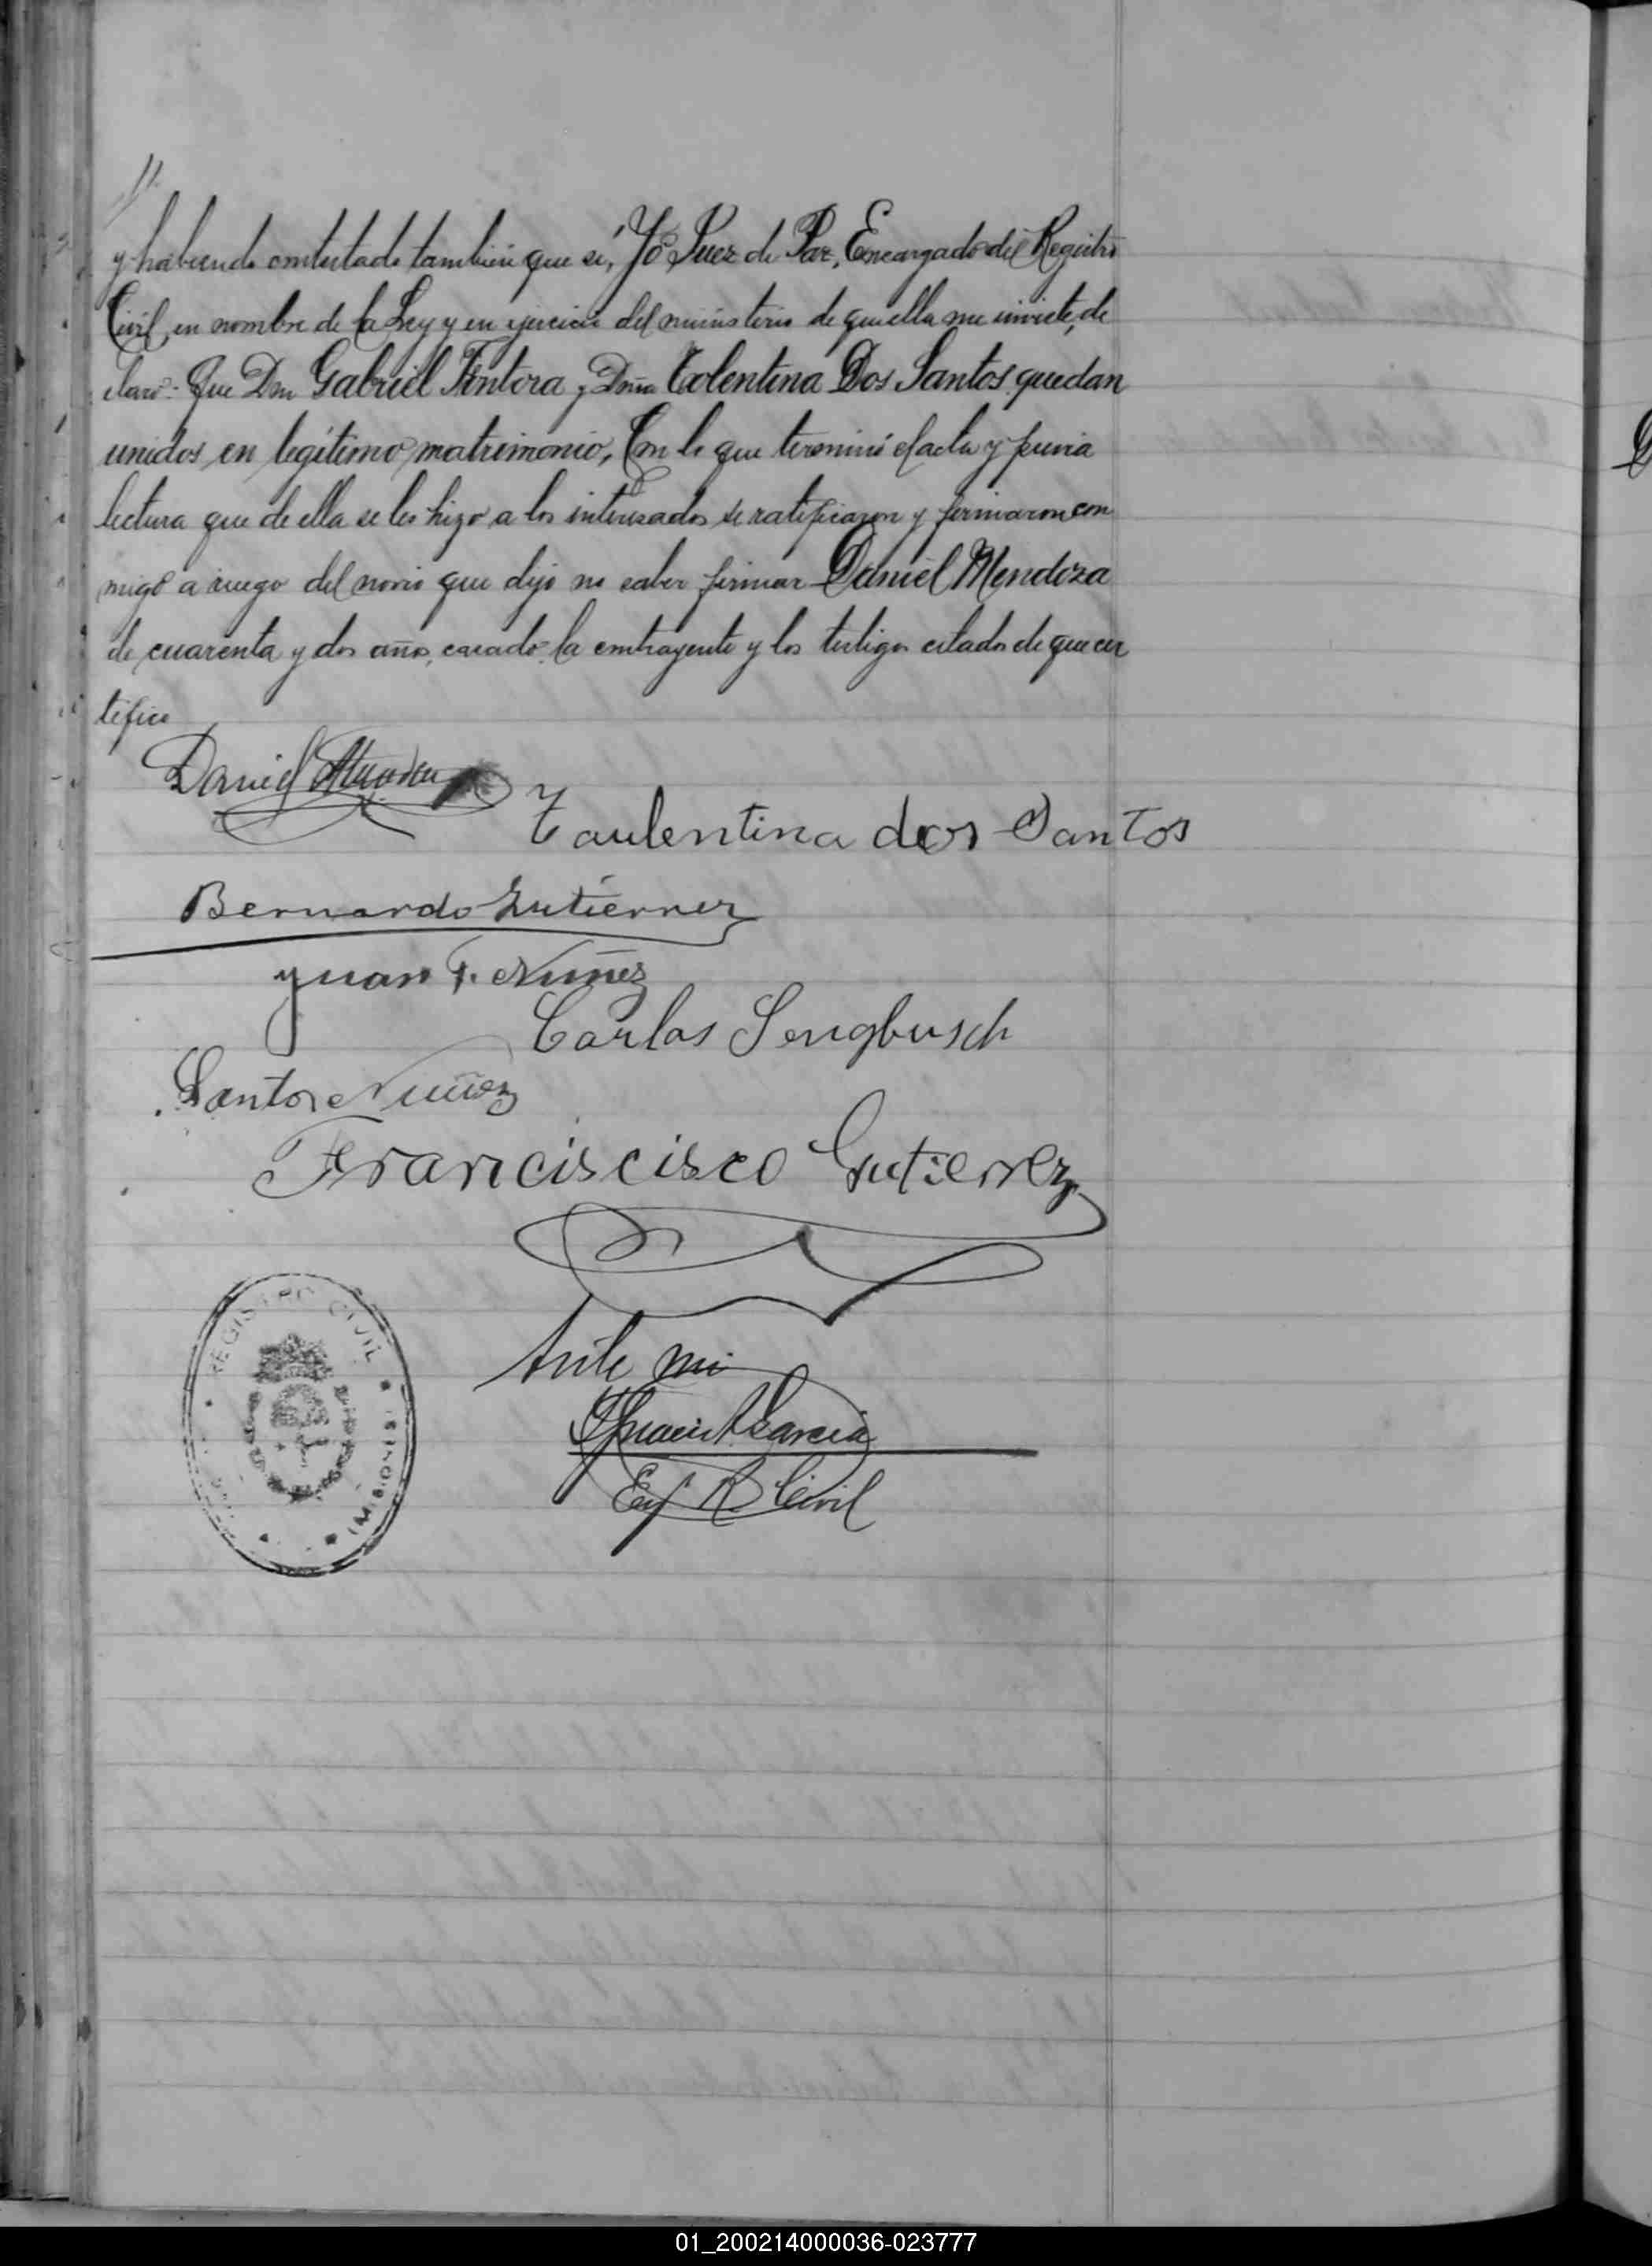 //
y habiendo contestado también que sí, Yo Juez de Paz, Encargado del Registro
Civil, en nombre de la Ley y en ejercicio del ministerio de que ella me inviste, de
claro: Que Don Gabriel Tintora y Dña Tolentina Dos Santos quedan
unidos en legítimo matrimonio, Con lo que terminó el acta y previa
lectura que de ella se les hizo a los interesados se ratificaron y firmaron con
migo a ruego del novio que dijo no saber firmar Daniel Mendoza
de cuarenta y dos años, casado, la contrayente y los testigos citados de que cer
tifico
Daniel Mendoza
Taulentina dos Santos
Bernardo Gutierrez
Juan F. Nuñez
Carlos Sengbusch
Santos Nuñez
Franciscisco Gutierrez
REGISTRO CIVIL
MISIONES
Ante mi
Garcia
Enc R Civil
01_200214000036-023777